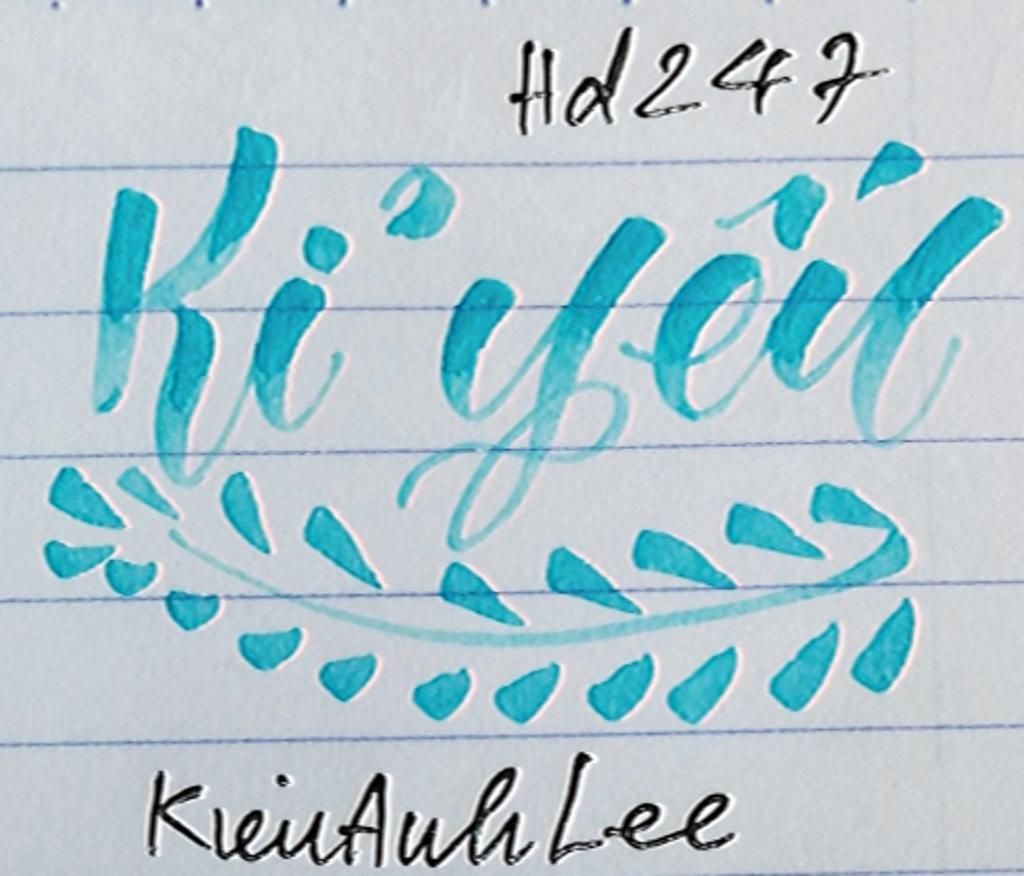 Hd247
Kỉ yếu
KienAnhLee